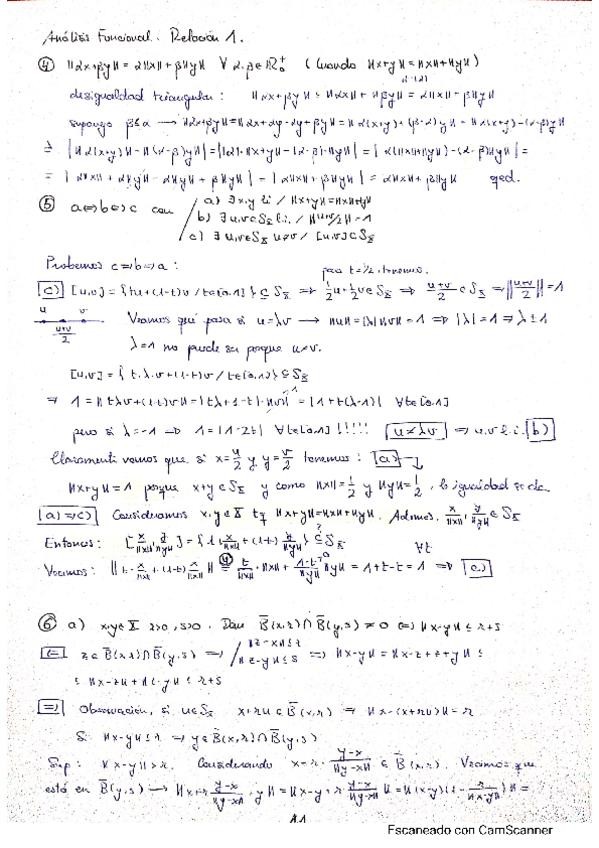 Análisis Funcional. Relación 1.
④ ‖αx+βy‖ = α‖x‖+β‖y‖ ∀ α,β∈ℝ₀⁺ (cuando ‖x+y‖=‖x‖+‖y‖)
desigualdad triangular: ‖αx+βy‖ ≤ ‖αx‖+‖βy‖ = α‖x‖+β‖y‖
supongo β≤α → ‖αx+βy‖=‖αx+αy-αy+βy‖=‖α(x+y)+(β-α)y‖=‖α(x+y)-(α-β)y‖
≥ |‖α(x+y)‖-‖(α-β)y‖|=||α|·‖x+y‖-|α-β|·‖y‖|=|α(‖x‖+‖y‖)-(α-β)‖y‖|=
= |α‖x‖+α‖y‖-α‖y‖+β‖y‖| = |α‖x‖+β‖y‖| = α‖x‖+β‖y‖ qed.
⑤ a⇔b⇔c con
a) ∃ x,y l.i / ‖x+y‖=‖x‖+‖y‖
b) ∃ u,v∈S_X l.i. / ‖u+v/2‖=1
c) ∃ u,v∈S_X u≠v / [u,v]⊂S_X
Probemos c⇒b⇒a:
para t=1/2, tenemos.
[c)] [u,v]={tu+(1-t)v / t∈[0,1]}⊆S_X ⇒ 1/2u+1/2v∈S_X ⇒ (u+v)/2∈S_X ⇒ ‖(u+v)/2‖=1
u v
(u+v)/2
Veamos qué pasa si u=λv → ‖u‖=|λ|‖v‖=1 ⇒ |λ|=1 ⇒ λ=±1
λ=1 no puede ser porque u≠v.
[u,v]={t·λ·v+(1-t)v / t∈[0,1]}⊆S_X
⇒ 1=‖tλv+(1-t)v‖=|tλ+1-t|·‖v‖=|1+t(λ-1)| ∀t∈[0,1]
pero si λ=-1 ⇒ 1=|1-2t| ∀t∈[0,1]!!!!! [u≠λv] ⇒ u,v l.i. [b)]
Claramente vemos que si x=u/2 y y=v/2 tenemos: [a)]
‖x+y‖=1 porque x+y∈S_X y como ‖x‖=1/2 y ‖y‖=1/2, la igualdad se da.
[a)⇒c)] Consideramos x,y∈X tq ‖x+y‖=‖x‖+‖y‖. Además, x/‖x‖, y/‖y‖∈S_X
Entonces: [x/‖x‖, y/‖y‖]={t x/‖x‖+(1-t) y/‖y‖} ⊆ S_X
?
∀t
Veamos: ‖t·x/‖x‖+(1-t)·x/‖x‖‖ =④ t/‖x‖·‖x‖+(1-t)/‖y‖·‖y‖=1+t-t=1 ⇒ [c.)]
⑥ a) x,y∈X r>0, s>0. Dem B̄(x,r)∩B̄(y,s)≠∅ ⇔ ‖x-y‖≤r+s
[⇐] z∈B̄(x,r)∩B̄(y,s) ⇒ ‖z-x‖≤r ‖z-y‖≤s ⇒ ‖x-y‖=‖x-z+z+y‖≤
≤ ‖x-z‖+‖z-y‖≤r+s
[⇒] Observación, si u∈S_X x+ru∈B̄(x,r) ⇒ ‖x-(x+ru)‖=r
Si ‖x-y‖≤r ⇒ y∈B̄(x,r)∩B̄(y,s)
Sup: ‖x-y‖>r. Considerando x+r·(y-x)/‖y-x‖∈B̄(x,r). Veamos que
está en B̄(y,s) → ‖x+r(y-x)/‖y-x‖-y‖=‖x-y+r·(y-x)/‖y-x‖‖=‖(x-y)(1-r/‖x-y‖)‖=
Escaneado con CamScanner